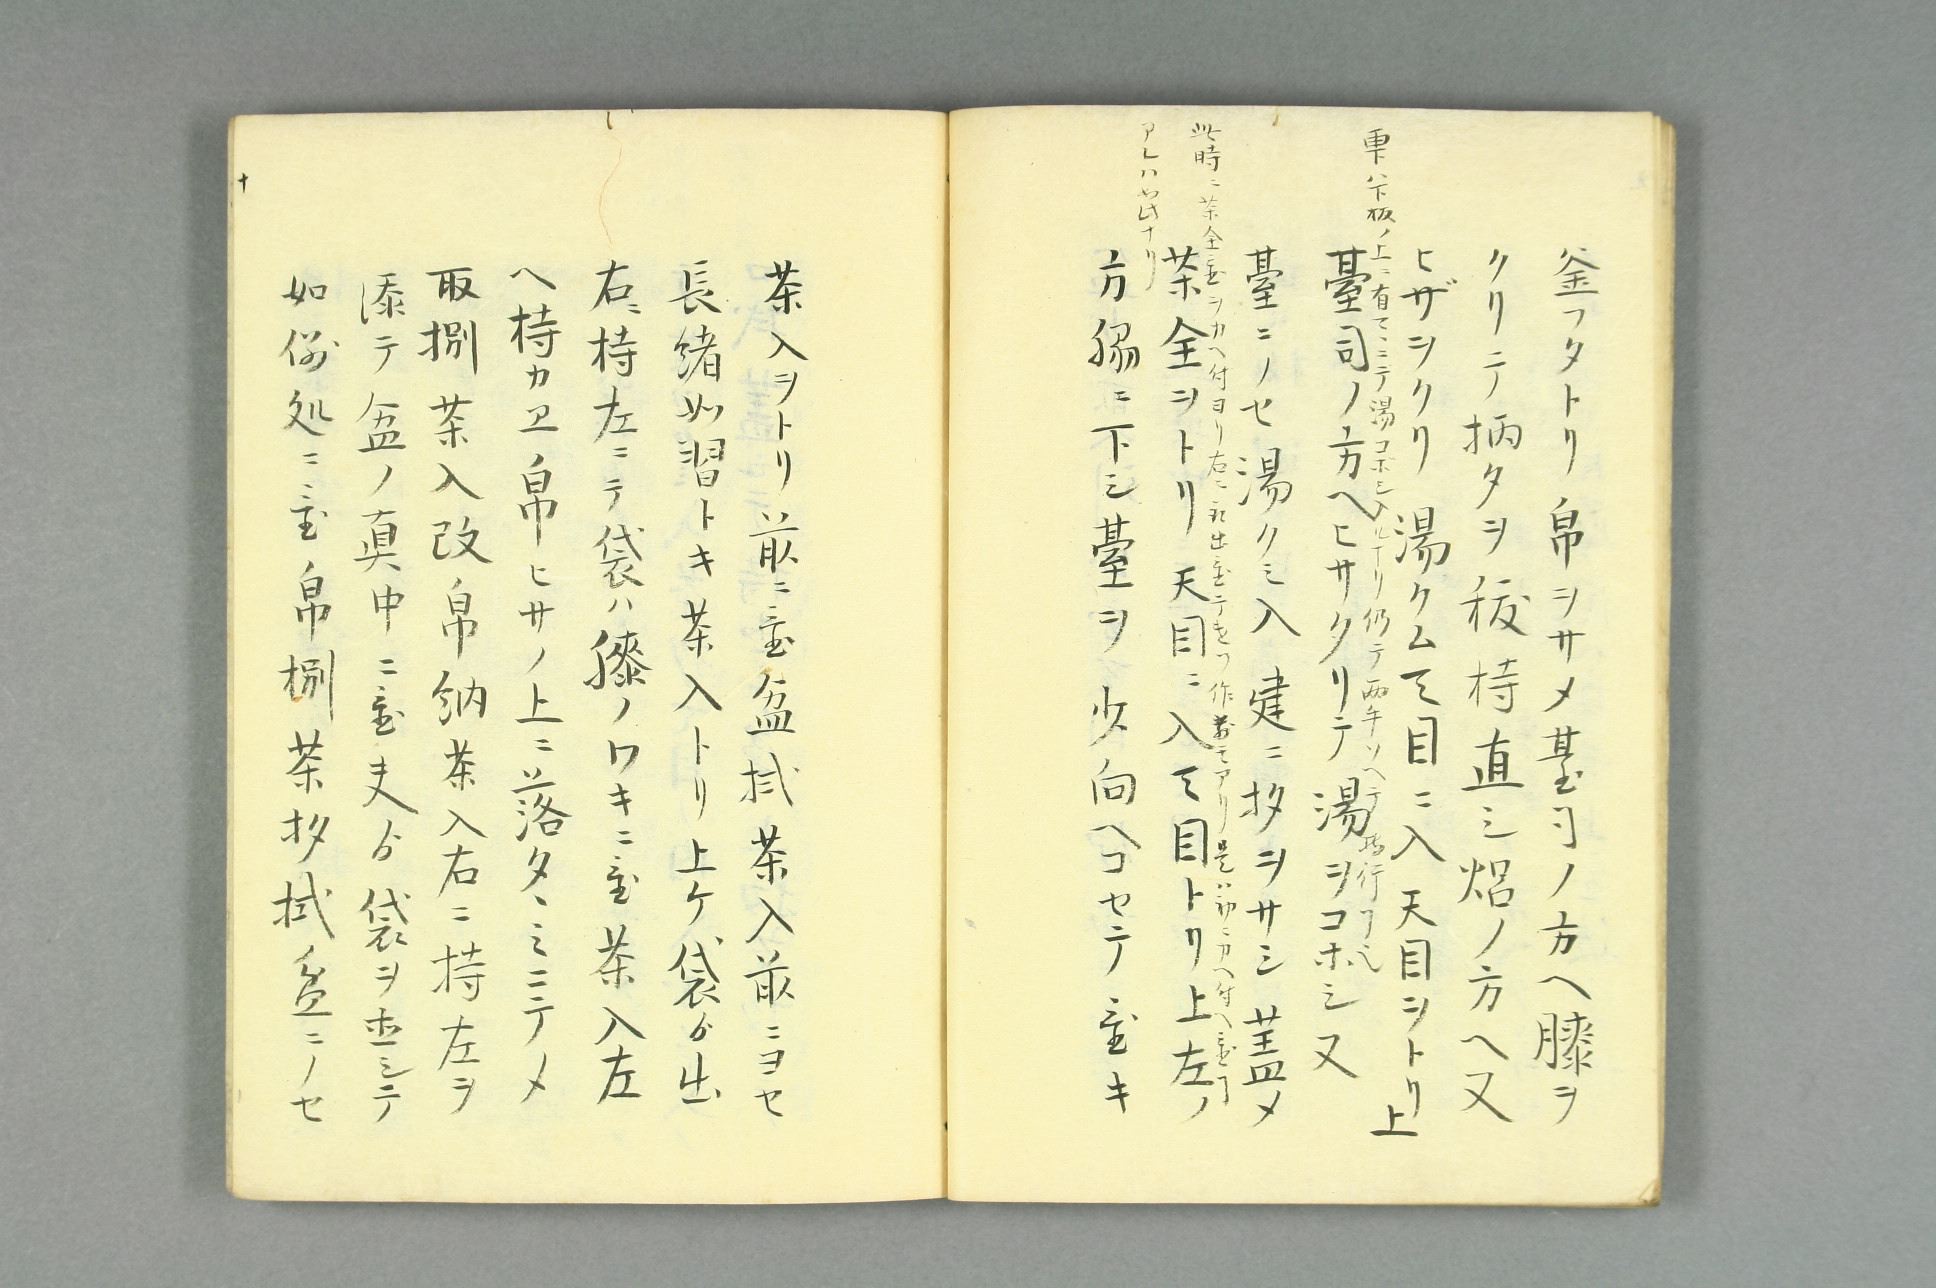 釜フタトリ帛ヲサメ臺司ノ方ヘ膝ヲ
クリテ柄タヲ 持直シ焔ノ方ヘ又
ヒザヲクリ湯クム天目ニ入天目ヲトリ上
雫ハ下板ノ上ニ有テニテ湯コホシ入ルナリ仍テ両手ソヘテ 行フ
臺司ノ方ヘヒサクリテ湯ヲコホシ又
臺ニノセ湯クミ入建ニ拶ヲサシ蓋メ
此時ニ茶全置ヲカヘ付ヨリ右ニ 出置テ 作 モアリ是ハ ニカヘ付ヘ置
茶全ヲトリ天目ニ入天目トリ上左ノ
アレハ 此ナリ
方脇ニ下シ臺ヲ少向ヘコセテ置キ
茶入ヲトリ前ニ置盆拭茶入前ニヨセ
長緒如習トキ茶入トリ上ケ袋ゟ出
右ニ持左ニテ袋ハ膝ノワキニ置茶入左
ヘ持カヱ帛ヒサノ上ニ落タヽミニテメ
取捌茶入改帛納茶入右ニ持左ヲ
添テ盆ノ真中ニ置夫ゟ袋ヲ直シテ
如例処ニ置帛捌茶拶拭盆ニノセ
十